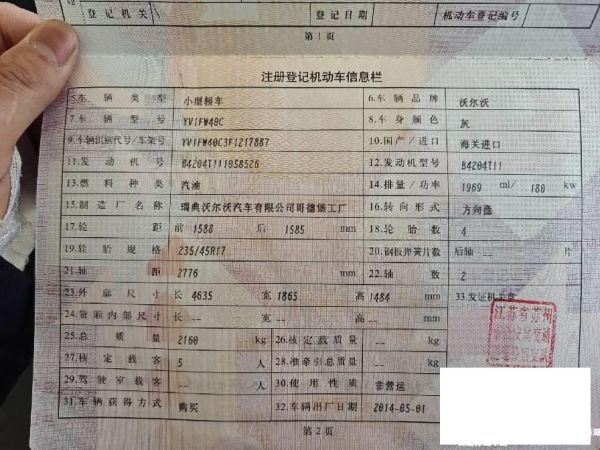 登记机关 登记日期 机动车登记编号
第1页
注册登记机动车信息栏
5.车辆类型 小型轿车 6.车辆品牌 沃尔沃
7.车辆型号 YV1FW40C 8.车身颜色 灰
9.车辆识别代号/车架号 YV1FW40C3F1217887 10.国产/进口 海关进口
11.发动机号 B4204T111058526 12.发动机型号 B4204T11
13.燃料种类 汽油 14.排量/功率 1969 ml/ 180 kw
15.制造厂名称 瑞典沃尔沃汽车有限公司哥德堡工厂 16.转向形式 方向盘
17.轮距 前 1588 后 1585 mm 18.轮胎数 4
19.轮胎规格 235/45R17 20.钢板弹簧片数 后轴 -- 片
21.轴距 2776 mm 22.轴数 2
23.外廓尺寸 长 4635 宽 1865 高 1484 mm 33.发证机关章
24.货厢内部尺寸 长 -- 宽 -- 高 -- mm
江苏省苏州
25.总质量 2160 kg 26.核定载质量 -- kg
27.核定载客 5 人 28.准牵引总质量 -- kg
29.驾驶室载客 -- 人 30.使用性质 非营运
31.车辆获得方式 购买 32.车辆出厂日期 2014-05-01
第2页